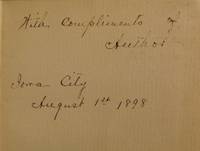 With compliments of
Author
Iowa City
August 1st 1898